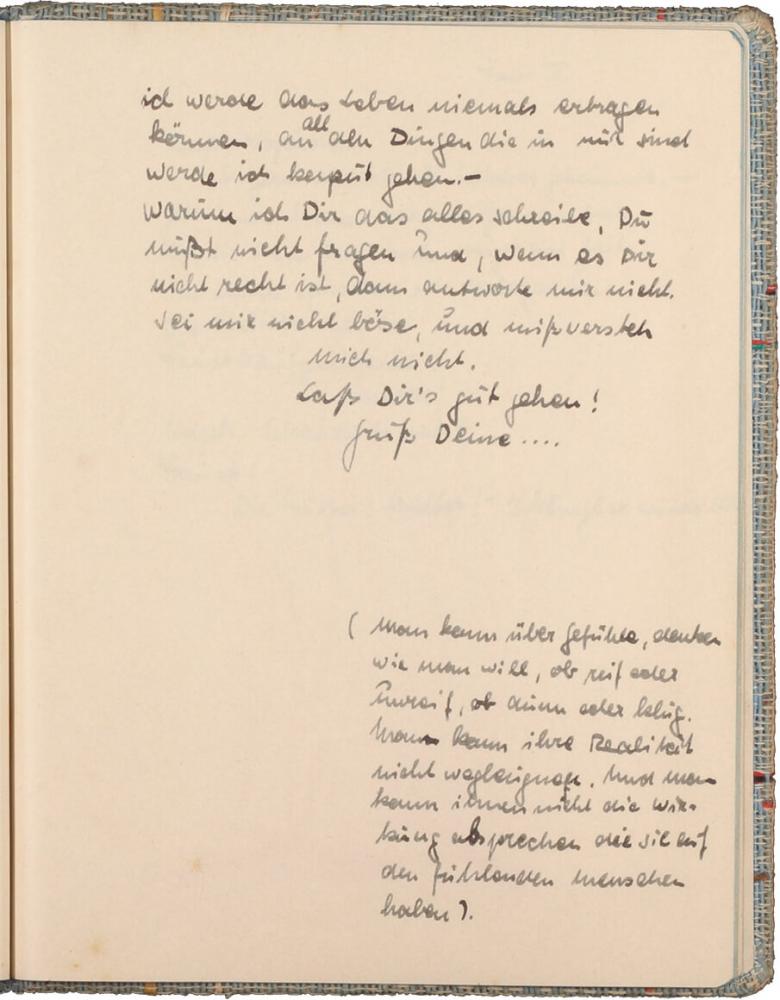 ich werde das Leben niemals ertragen
können, an all den Dingen die in mir sind
werde ich kaputt gehen.–
Warum ich Dir das alles schreibe, Du
mußt nicht fragen und, wenn es Dir
nicht recht ist, dann antworte mir nicht.
Sei mir nicht böse, und mißversteh
mich nicht.
Laß Dir's gut gehen!
Gruß Deine ....
( Man kann über Gefühle, denken
wie man will, ob reif oder
unreif, ob dumm oder klug.
Man kann ihre Realität
nicht wegleugnen. Und man
kann ihnen nicht die Wir-
kung absprechen die sie auf
den fühlenden Menschen
haben ).